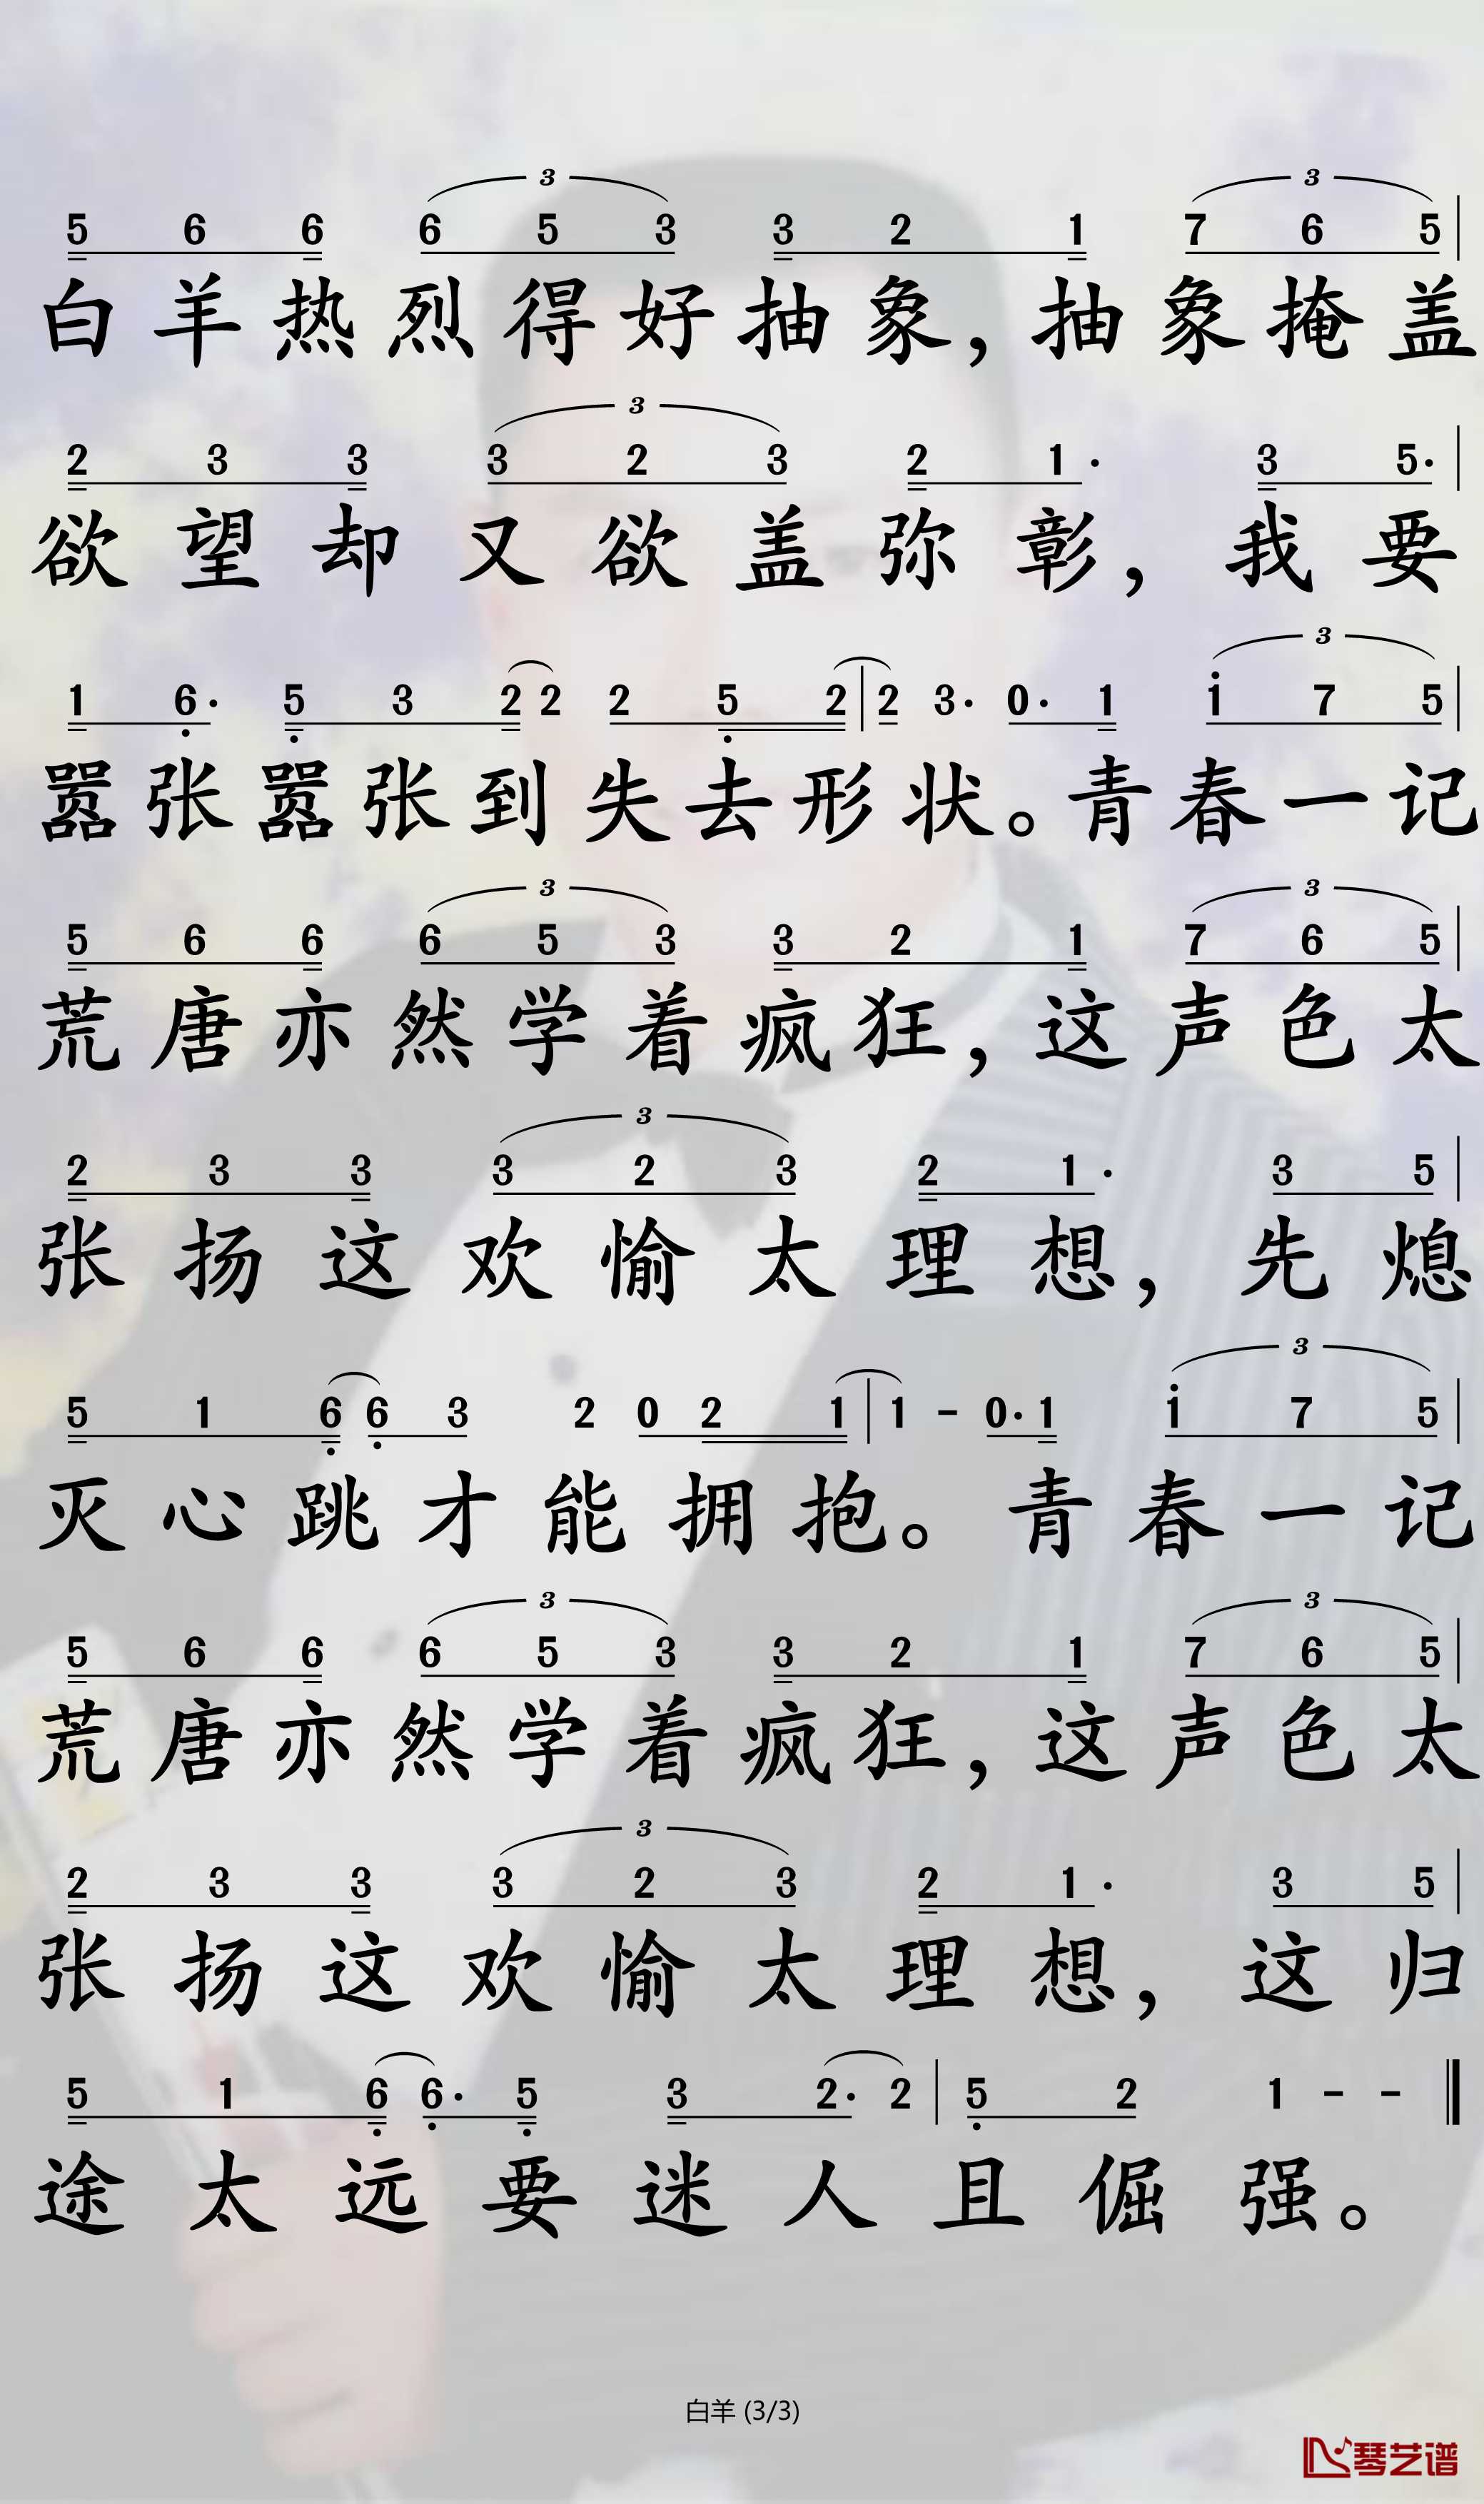 3 3
5 6 6 6 5 3 3 2 1 7 6 5 |
白羊热烈得好抽象，抽象掩盖
3
2 3 3 3 2 3 2 1· 3 5· |
欲望却又欲盖弥彰，我要
3
1 6· 5 3 2 2 2 5 2 | 2 3· 0· 1 1 7 5 |
嚣张嚣张到失去形状。青春一记
3 3
5 6 6 6 5 3 3 2 1 7 6 5 |
荒唐亦然学着疯狂，这声色太
3
2 3 3 3 2 3 2 1· 3 5 |
张扬这欢愉太理想，先熄
3
5 1 6 6 3 2 0 2 1 | 1 - 0· 1 1 7 5 |
灭心跳才能拥抱。青春一记
3 3
5 6 6 6 5 3 3 2 1 7 6 5 |
荒唐亦然学着疯狂，这声色太
3
2 3 3 3 2 3 2 1· 3 5 |
张扬这欢愉太理想，这归
5 1 6 6· 5 3 2· 2 | 5 2 1 - - ‖
途太远要迷人且倔强。
白羊 (3/3)
琴艺谱